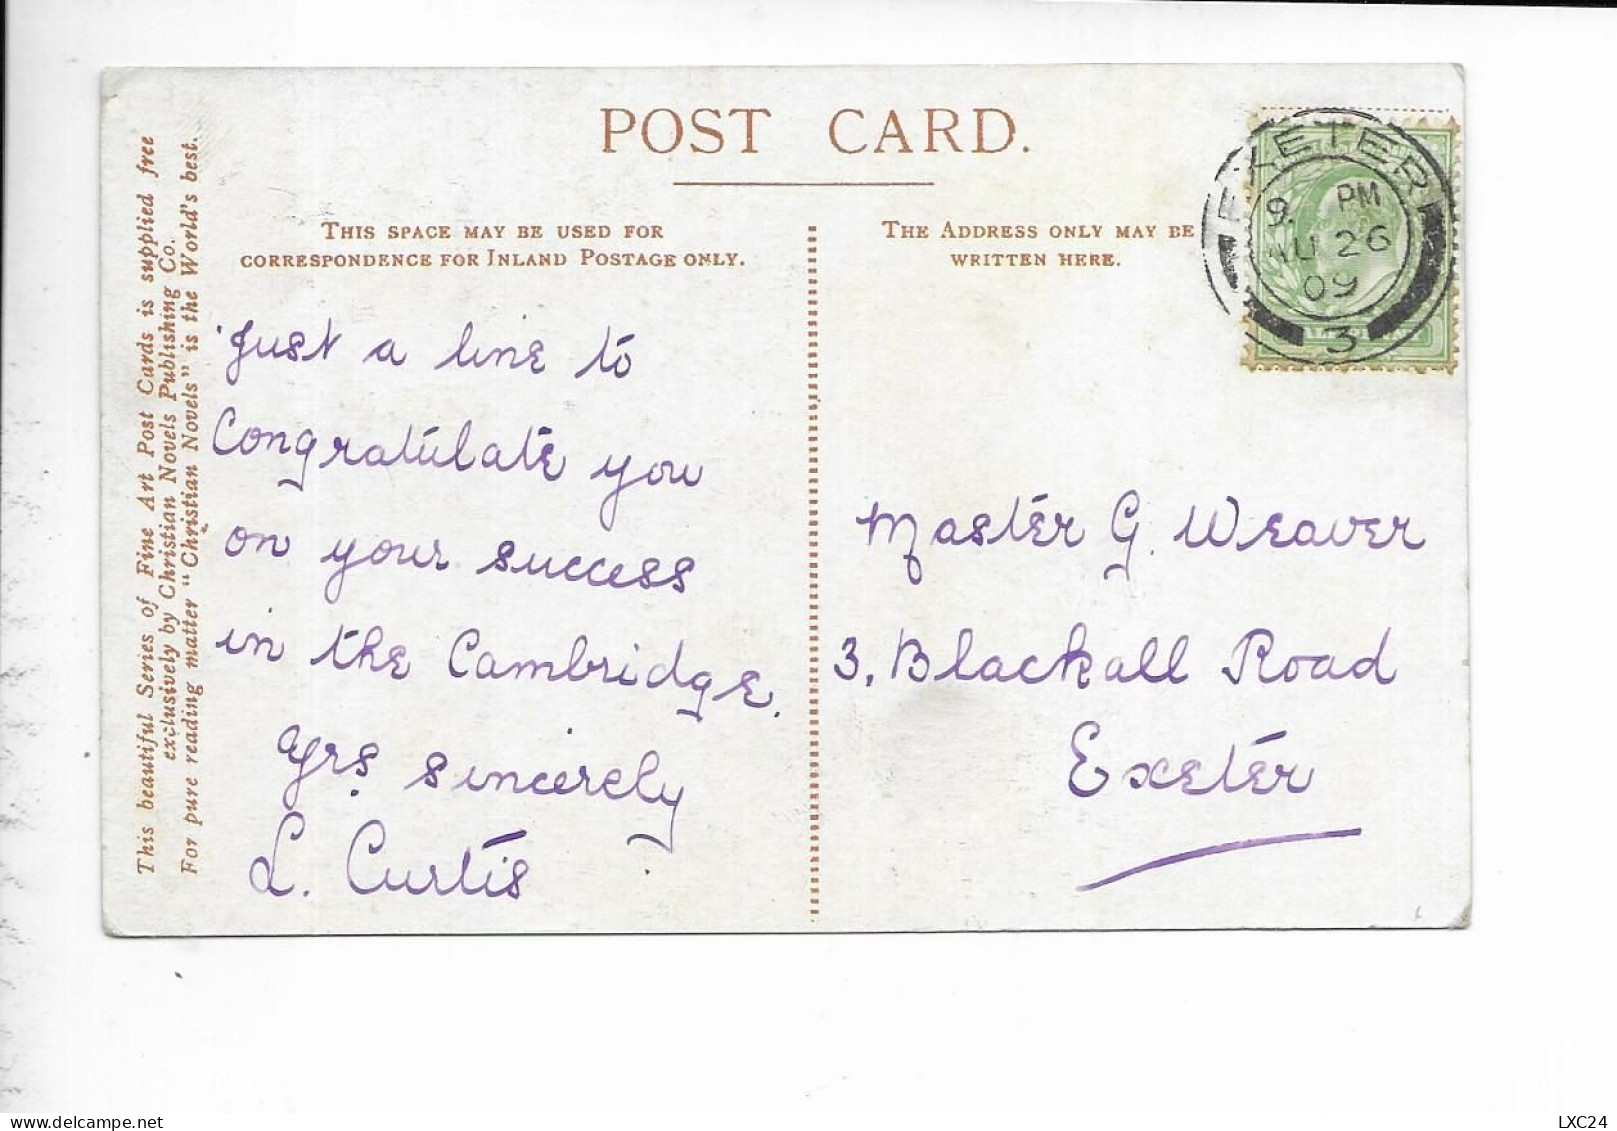 POST CARD.
THIS SPACE MAY BE USED FOR
CORRESPONDENCE FOR INLAND POSTAGE ONLY.
THE ADDRESS ONLY MAY BE
WRITTEN HERE.
This beautiful Series of Fine Art Post Cards is supplied free
exclusively by Christian Novels Publishing Co.
For pure reading matter "Christian Novels" is the World's best.
Just a line to
Congratulate you
on your success
in the Cambridge.
Yrs. sincerely
L. Curtis
EXETER
9. PM
26
09
3
Master G. Weaver
3, Blackall Road
Exeter
LXC24